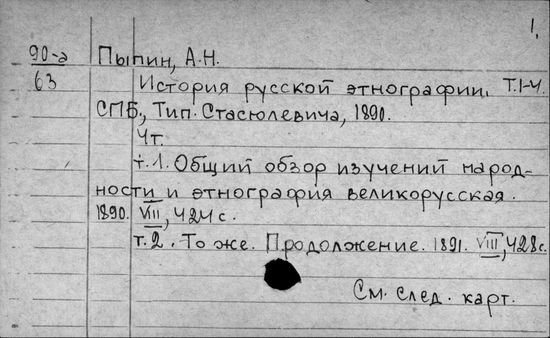 1.
90-a Пыпин, А.Н.
63 История русской этнографии. Т.1-4.
СПБ., Тип. Стасюлевича, 1890.
4т.
т.1. Общий обзор изучений народ-
ности и этнография великорусская.
1890. VIII, 424 с.
т.2. То же. Продолжение. 1891. VIII, 428 с.
См. след. карт.